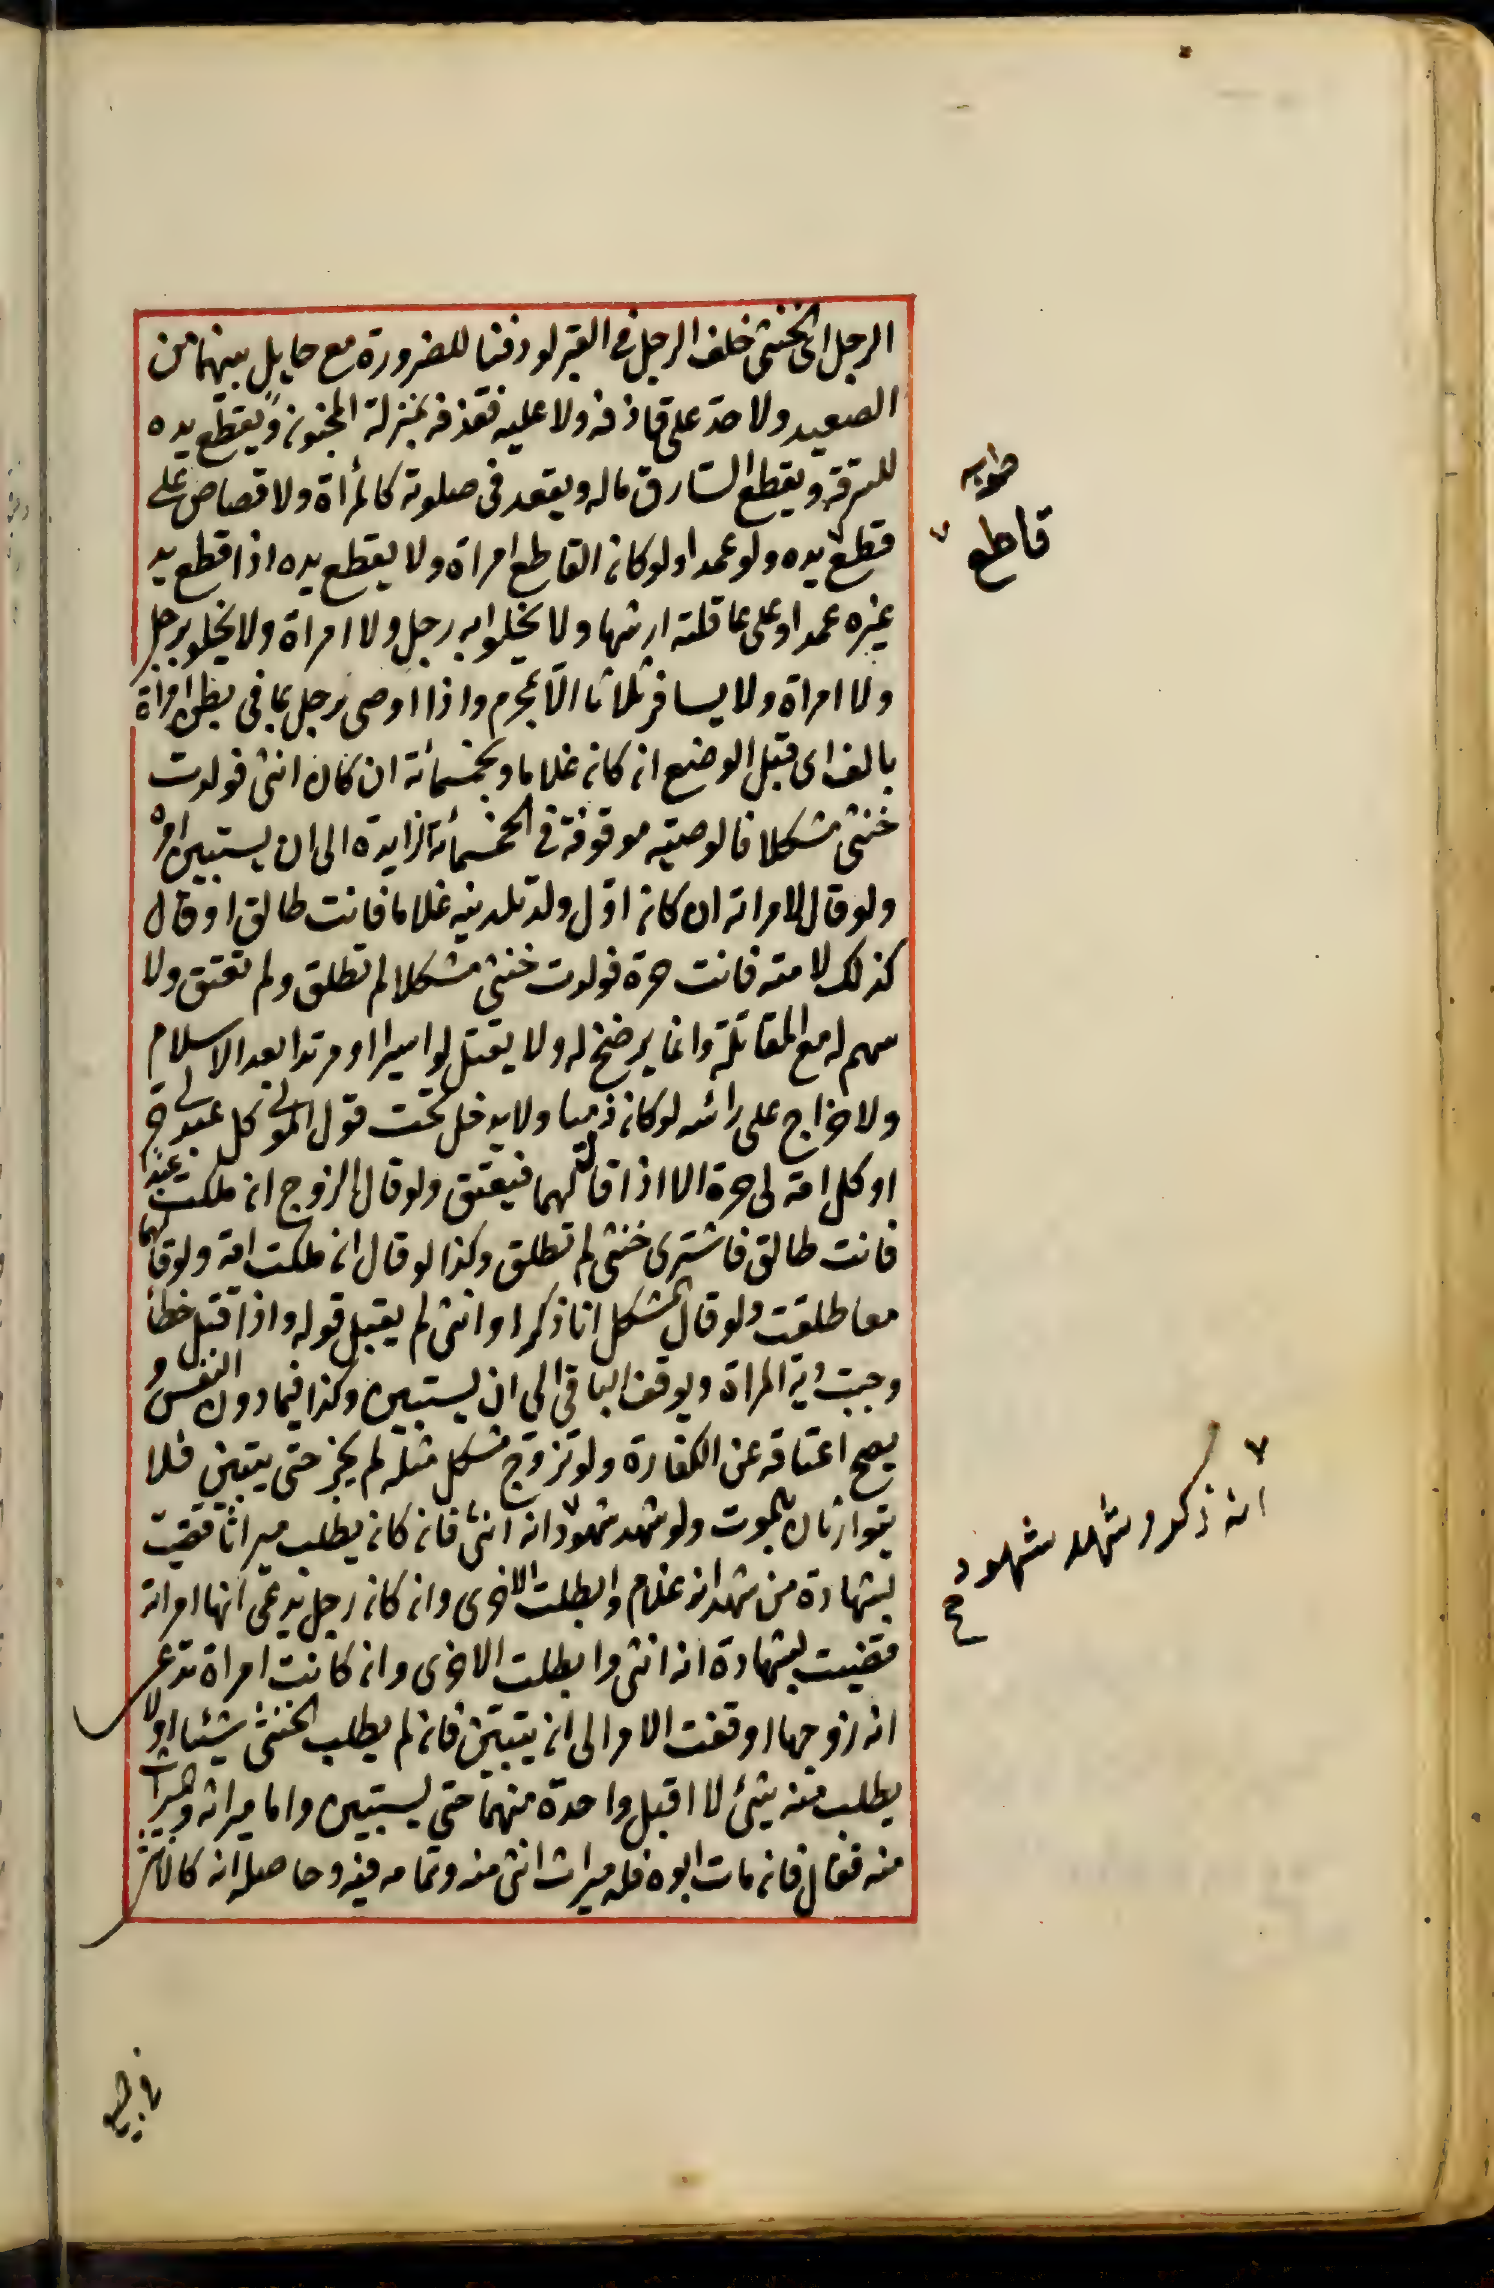 الرجل اى الخنثى خلف الرجل فى القبر لو دفنا للضرورة مع حايل بينهما من
الصعيد ولا حد على قاذفه ولا عليه فقذفه بمنزلة المجنون ويقطع يده
للسرقة ويقطع السارق ماله ويقعد فى صلوته كالمرأة ولا قصاص على
قطع يده ولو عمدا ولو كان القاطع امراة ولا يقطع يده اذا قطع يد
غيره عمدا وعلى عاقلته ارشها ولا يخلوا به رجل ولا امراة ولا يخلو برجل
ولا امراة ولا يسافر ثلاثا الا بمحرم واذا اوصى رجل بما فى بطن امراة
بالف اى قبل الوضع ان كان غلاما وبخمسمائة ان كان انثى فولدت
خنثى مشكلا فالوصية موقوفة فى الخمسمائة الزايدة الى ان يستبين امره
ولو قال لامراته ان كان اول ولد تلدينه غلاما فانت طالق او قال
كذلك لامته فانت حرة فولدت خنثى مشكلا لم تطلق ولم تعتق ولا
سهم له مع المقاتلة وانما يرضخ له ولا يقتل لو اسيرا او مرتدا بعد الاسلام
ولا خراج على رائسه لو كان ذميا ولا يدخل تحت قول المولى كل عبد لى حر
او كل امة لى حرة الا اذا قالهما فيعتق ولو قال الزوج ان ملكت عبدا
فانت طالق فاشترى خنثى لم تطلق وكذا لو قال ان ملكت امة ولو قالهما
معا طلقت ولو قال المشكل انا ذكر او انثى لم يقبل قوله واذا قتل خطأ
وجبت دية المراة ويوقف الباقى الى ان يستبين وكذا فيما دون النفس و
يصح اعتاقه عن الكفارة ولو تزوج مشكل مثله لم يجز حتى يتبين فلا
يتوارثان بالموت ولو شهد شهود انه انثى فان كان يطلب ميراثا قضيت
بشهادة من شهد انه غلام وابطلت الاخرى وان كان رجل يدعى انها امراته
قضيت بشهادة انه انثى وابطلت الاخرى وان كانت امراة تدعى
انه زوجها اوقفت الامر الى ان يتبين فان لم يطلب الخنثى شيئا ولا
يطلب منه شئ لا اقبل واحدة منهما حتى يستبين واما ميراثه والميراث
منه فقال فان مات ابوه فله ميراث انثى منه وتمامه فيه وحاصله انه كالانثى
صوابه
قاطع
انه ذكر وشهد شهود
صح